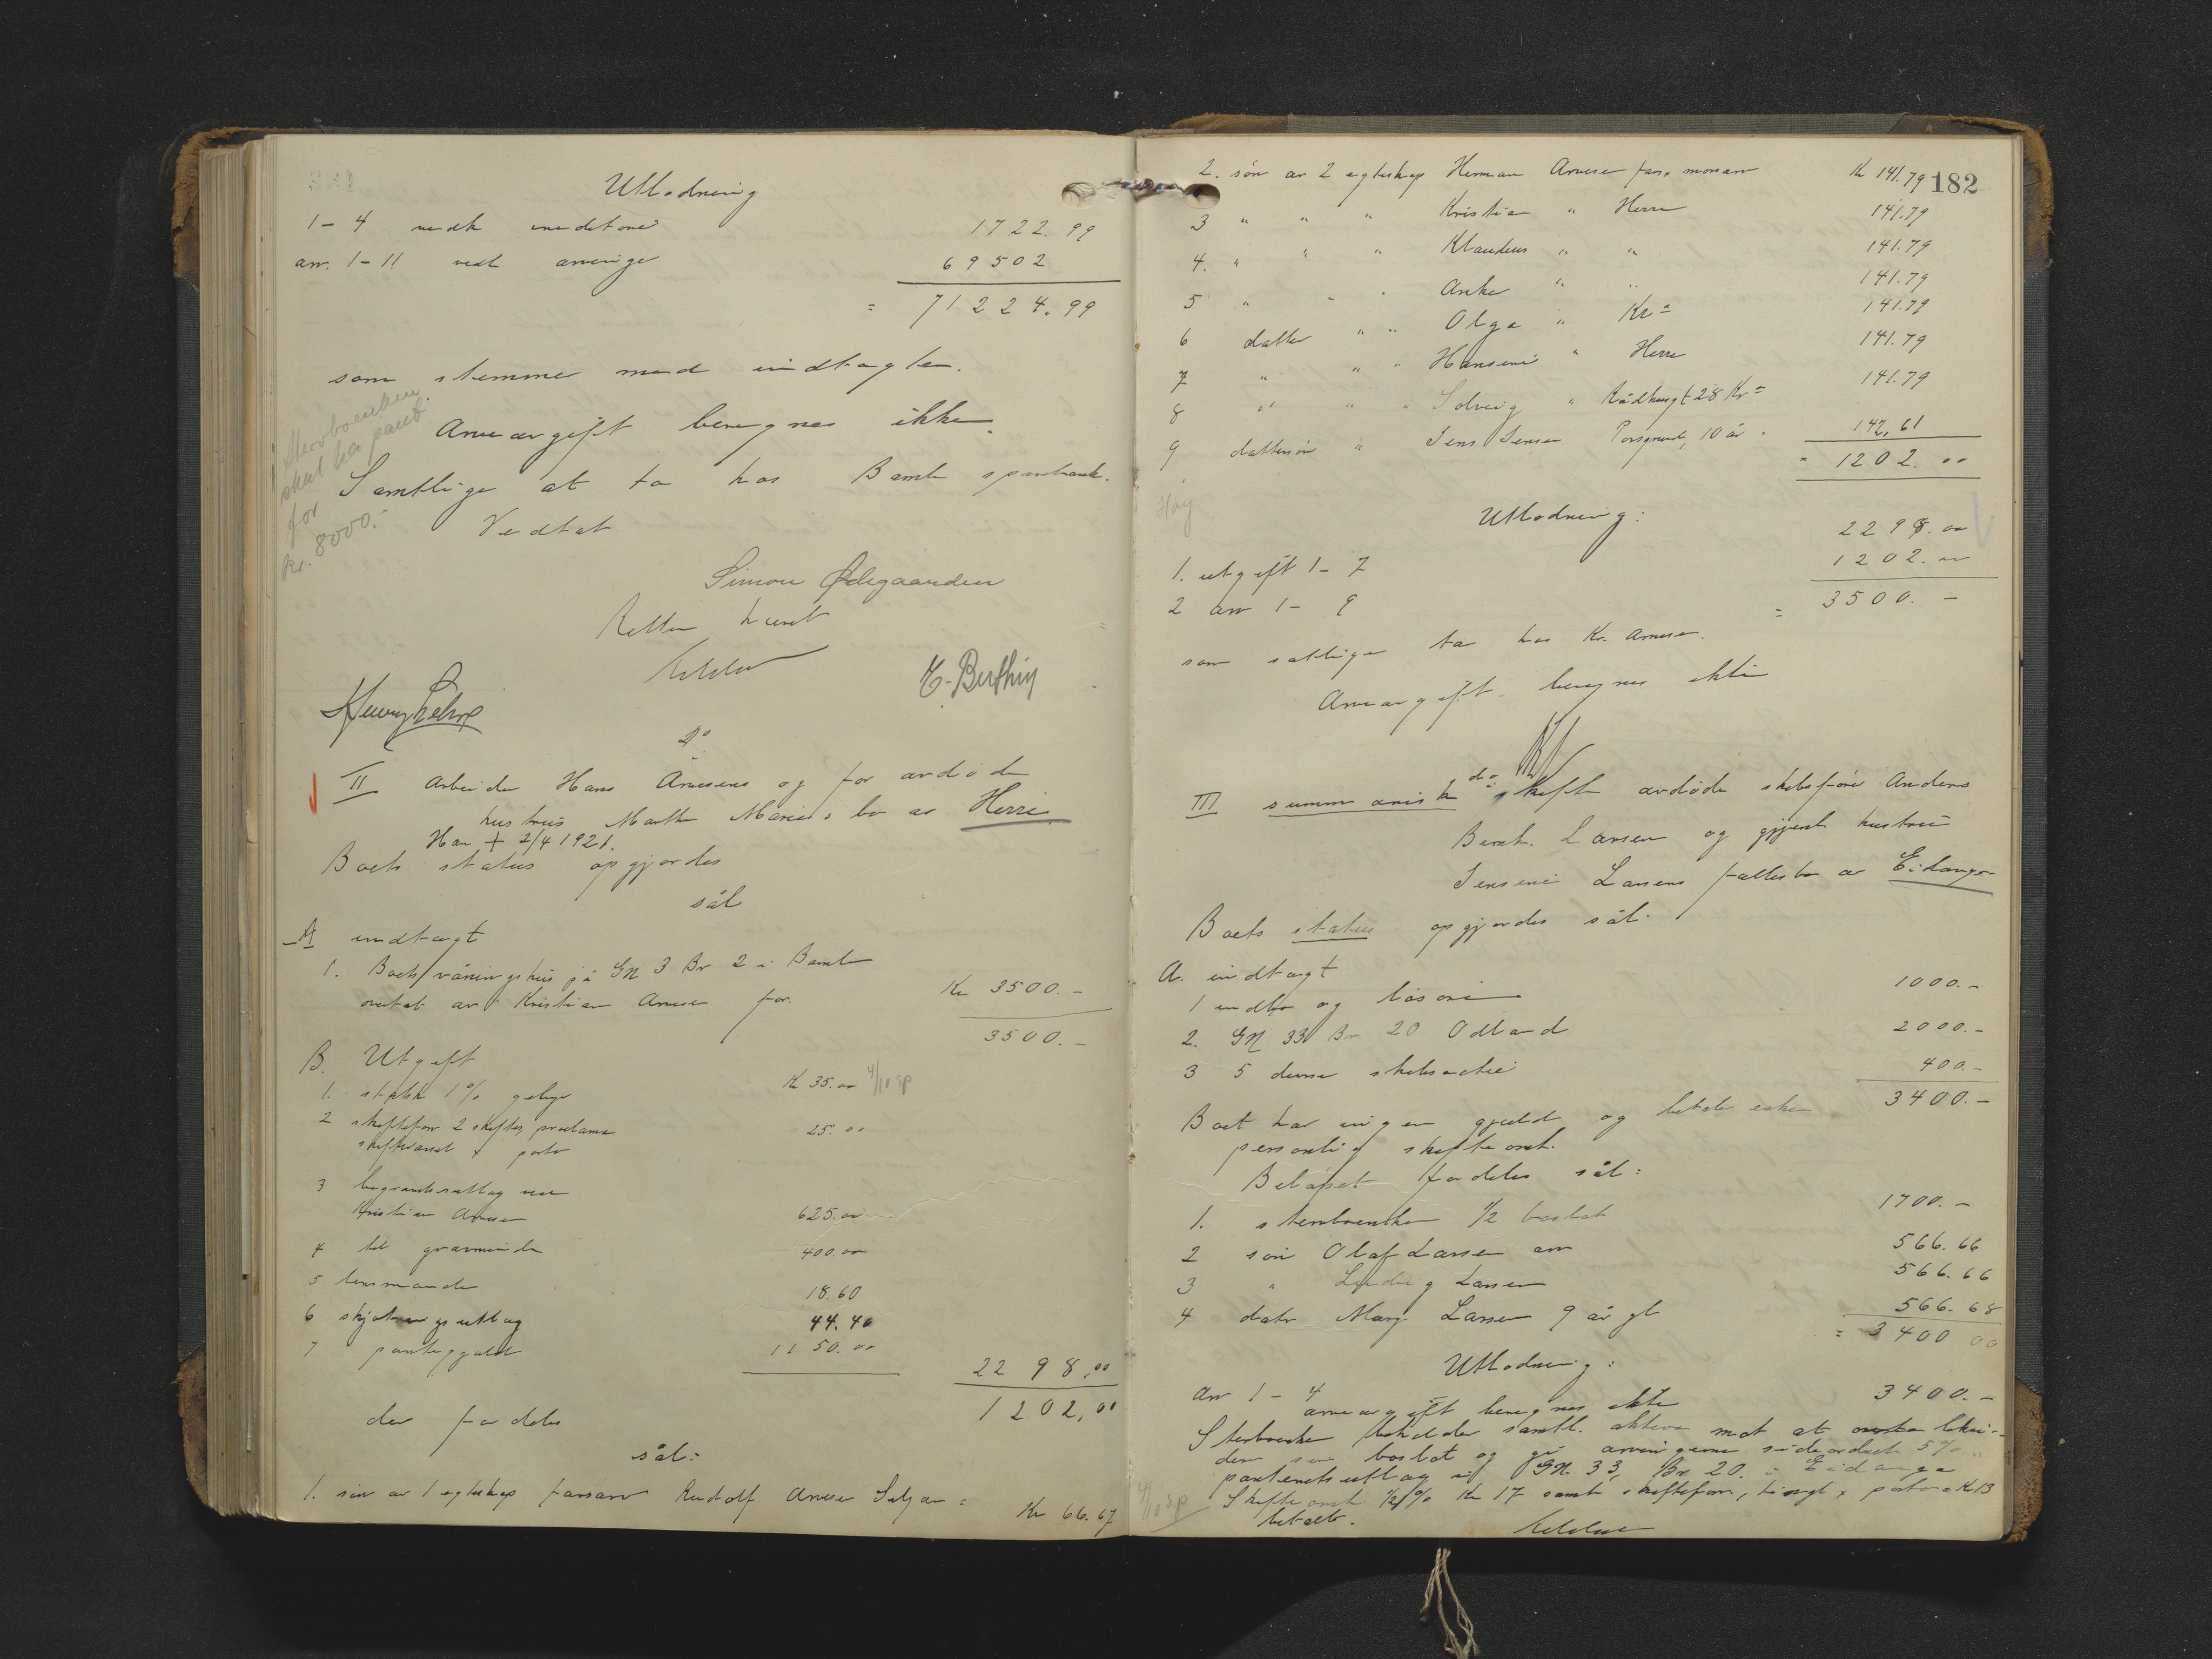 Utlodning
1-4 vedk kreditorer 1722.99
arv. 1-11 vedk arvinger 69502
= 71224.99
som stemmer med indtægten.
Arveavgift beregnes ikke.
Samtlige at ta hos Bamle sparebank.
skal ha pant
for
kr. 8000.-
Vedtat
Simon Ødegaarden
Retten hævet
E. Berthin
do
II Arbeider Hans Arnesens og før avdøde
hustrus Marthe Maries bo av Herre.
Han + 2/4 1921.
Boets status opgjordes
sål
A indtægt
1. Boets våningshus på GN 3 Br 2 i Bamle
overtat av Kristian Arnesen for. Kr 3500.-
3500.-
B. Utgift
1. statsk 1% gebyr Kr 35.00 4/10 sp
2 skifteforr 2 skifter, proclama
skiftevarsel + porto 25.00
3 begravelsesutlæg ved
Kristian Arnesen 625.00
4 til gravminde 400.00
5 lensmanden 18.60
6 skjøtningsutlæg 44.40
7 pantegjæld 1150.00
2298,00
1202,00
der fordeles
sål:
1. søn av 1 egteskap farsarv Rudolf Arnesen Kr 66.67
182
2. søn av 2 egteskap Herman Arnesen fars x morsarv Kr 141.79
3 " " " Kristian " Herre 141.79
4. " " " Klaudius " " 141.79
5 " " " Anker " " 141.79
6 datter " " Olga " Kra 141.79
7 " " " Hansine " Herre 141.79
8 " " " Solveig " Rådhusgt 28 Kra 141.79
9 dattersøn " Jens Jensen Porsgrund, 10 år. 142,61
= 1202.00
Utlodning:
1. utgift 1-7 2298.00
2 arv 1-9 1202.00
= 3500.-
som samtlige tar hos Kr. Arnesen.
Arveavgift beregnes ikke
do
III summarisk skifte avdøde skibsfører Anders
Bernt. Larsen og gjenl hustru
Jensine Larsens fællesbo av Eidanger
Boets status opgjordes sål.
A. indtægt
1 indbo og løsøre 1000.-
2. GN 33 Br 20 Odland 2000.-
3 5 diverse skibsactier 400.-
3400.-
Boet har ingen gjæld og betaler enken
personlig skifteomk.
Beløpet fordeles sål:
1. sterboenken 1/2 boslod 1700.-
2 søn Olaf Larsen arv 566.66
3 " Ludvig Larsen 566.66
4 datr Marg. Larsen 9 år gl 566.68
= 3400 00
Utlodning:
arv 1-4 3400.-
arveavgift beregnes ikke
Sterboenken beholder samtl. aktiva mot at
dem som boslod og gi arvingerne sideordnet 5%
panteretsutlæg i GN. 33, Br. 20. i Eidanger
Skifteomk 1/2% Kr 17 samt skifteforr, tingl x porto = Kr 13
betalt.
4/10 sp